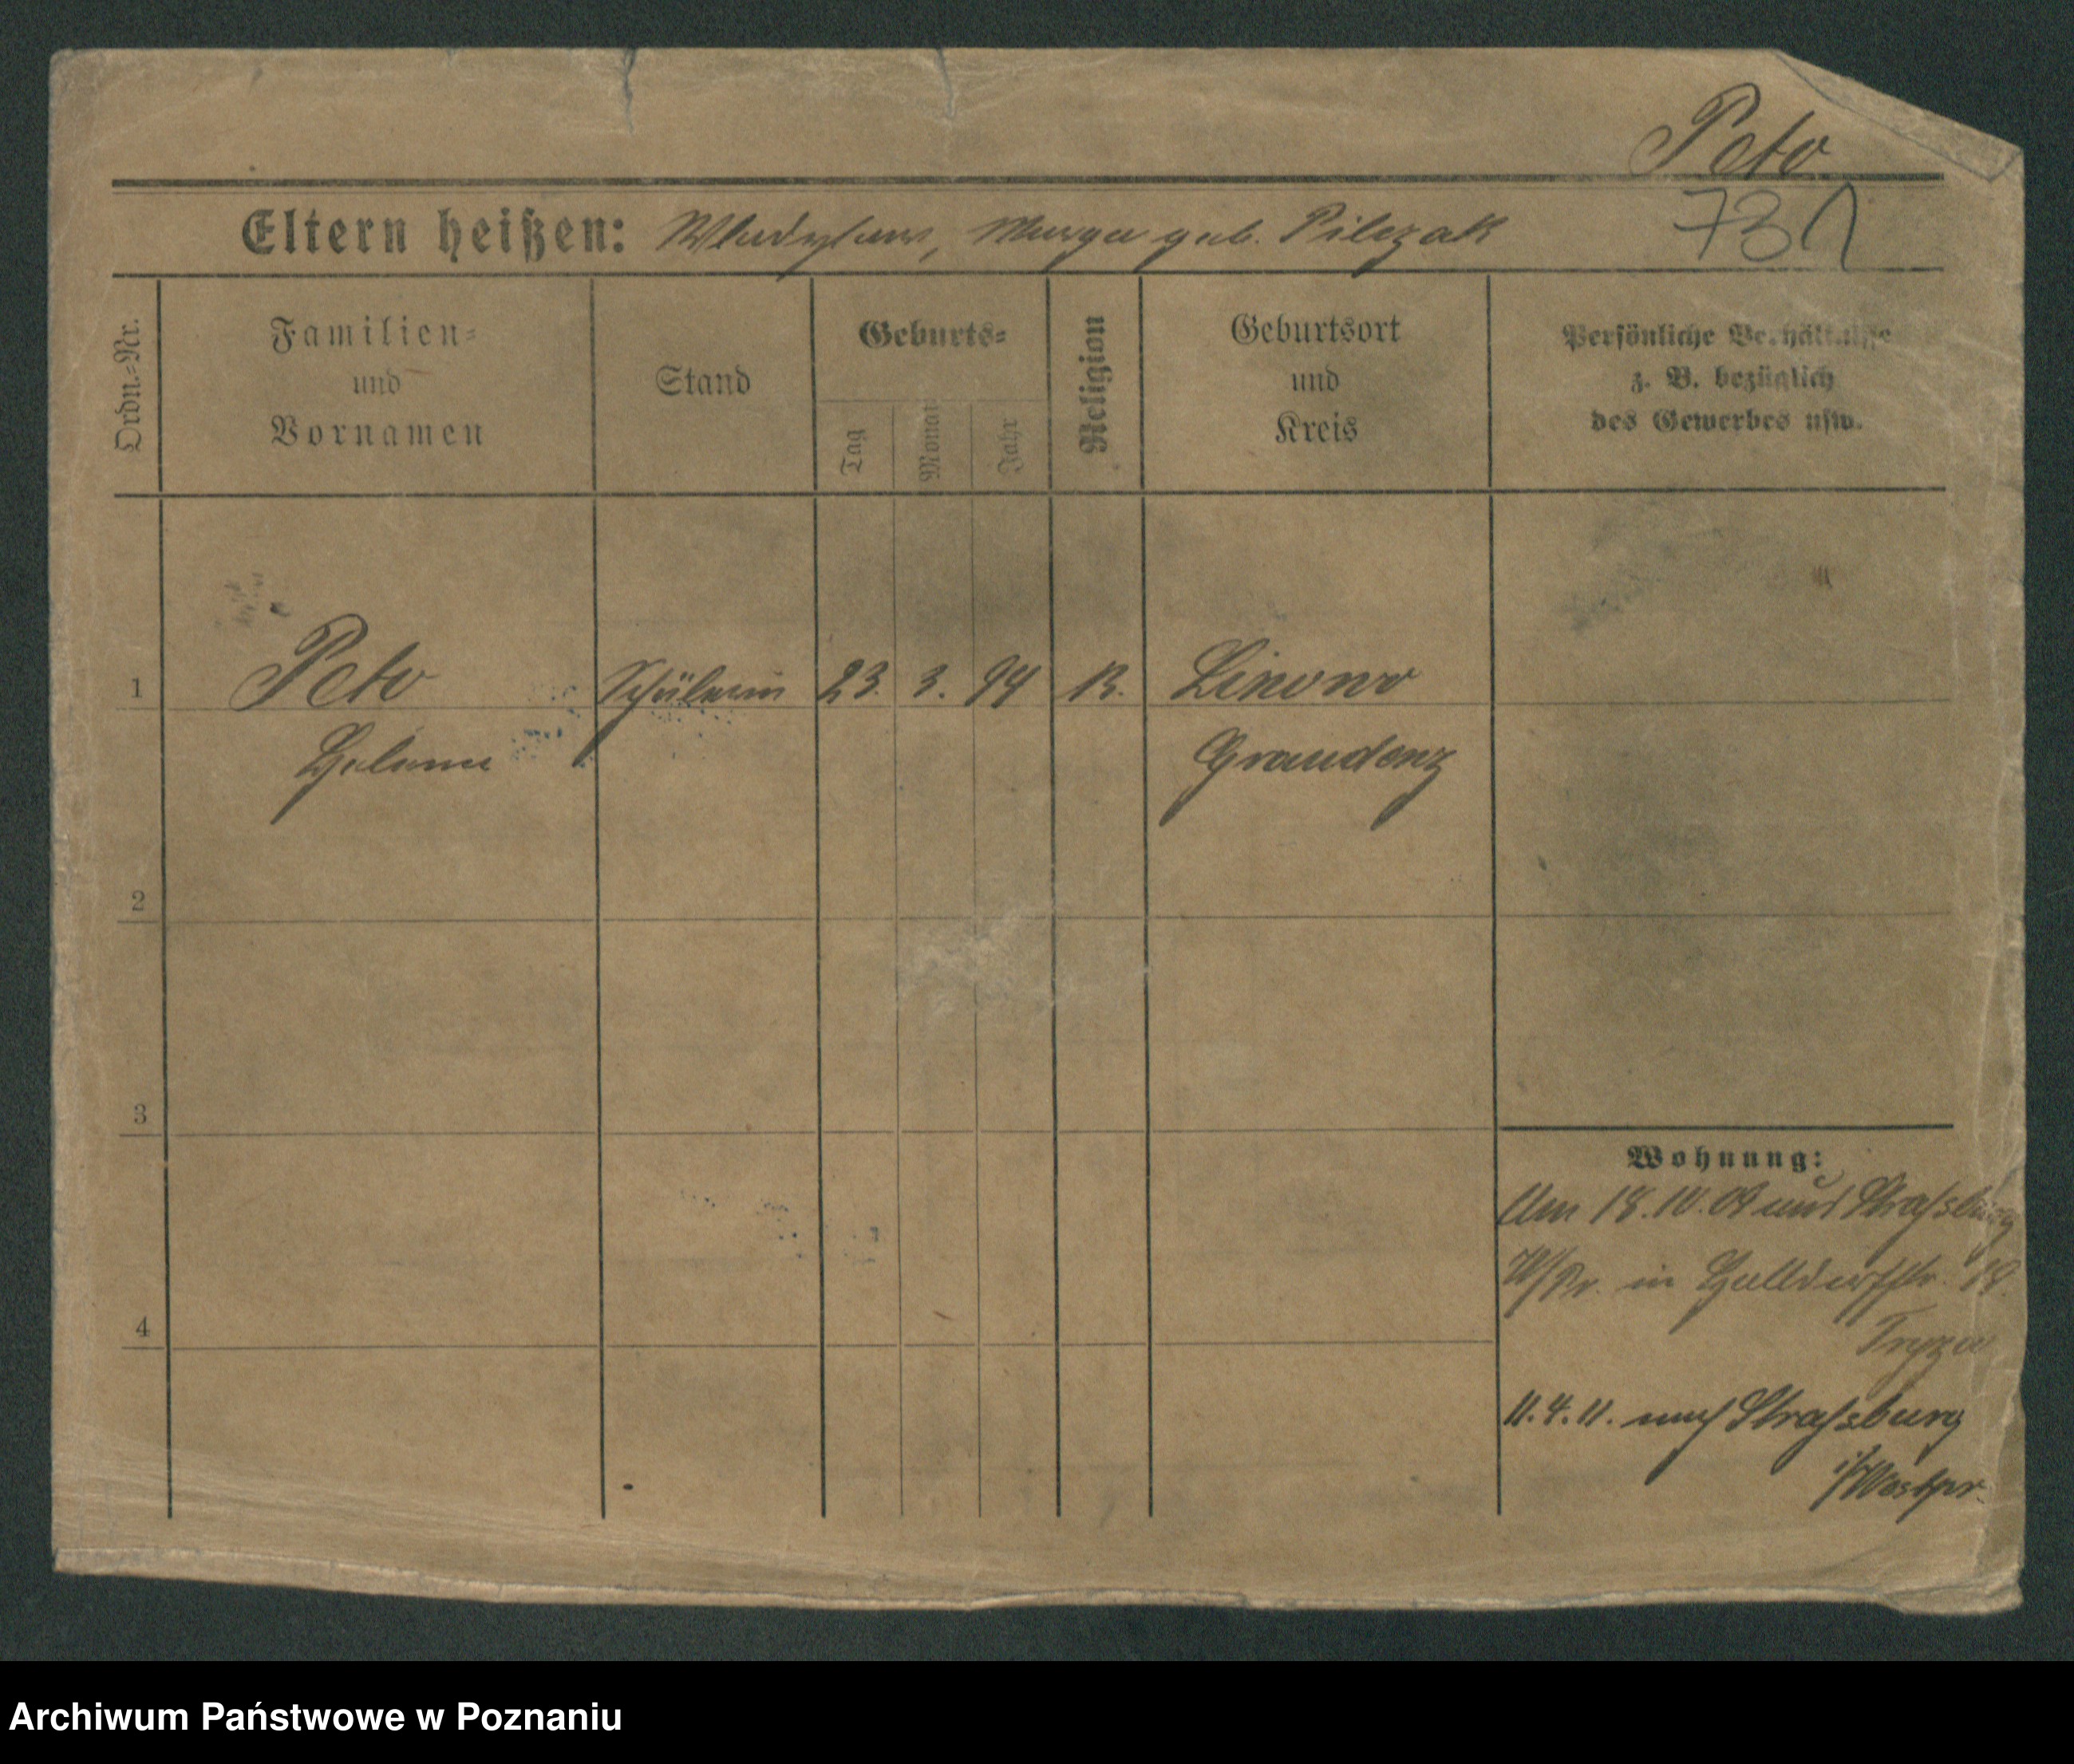 Peto
Eltern heißen: Wladyslaus, geb. Pilczak
731
Ordn.-Nr.
Familien-
und
Vornamen
Stand
Geburts-
Tag
Monat
Jahr
Religion
Geburtsort
und
Kreis
Persönliche Verhältnisse
z. B. bezüglich
des Gewerbes usw.
1 Peto Schülerin 23. 3. 94 K. Linowo
Helene Graudenz
2
3
4
Wohnung:
Am 18.10.09 aus Strassburg
W/Pr. in 18.
11.4.11. nach Strassburg
i/Westpr.
Archiwum Państwowe w Poznaniu